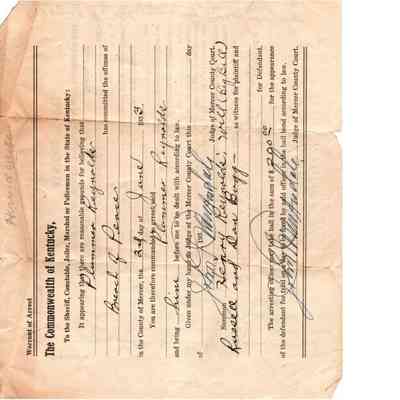 Warrant of Arrest
The Commonwealth of Kentucky,
To the Sheriff, Constable, Jailer, Marshal or Policeman in the State of Kentucky:
It appearing that there are reasonable grounds for believing that
Plummer Reynolds
has committed the offense of
Breach of Peace
in the County of Mercer, the day of June 193
You are therefore commanded to arrest said
Plummer Reynolds
and bring him before me to be dealt with according to law.
Given under my hand as Judge of the Mercer County Court this day
of 193
Judge of Mercer County Court.
Summons Henry Reynolds,
Russell and Dan to witness for plaintiff and
for Defendant.
The arresting officer may take bail by the sum of $ for the appearance
of the defendant for trial and bail bond according to law.
Judge of Mercer County Court.